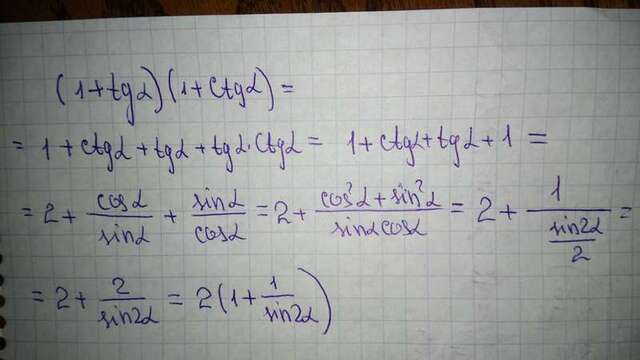 (1+tgα)(1+ctgα)=
= 1+ctgα+tgα+tgα·ctgα = 1+ctgα+tgα+1 =
= 2 + cosα/sinα + sinα/cosα = 2 + (cos²α+sin²α)/(sinαcosα) = 2 + 1/(sin2α/2) =
= 2 + 2/sin2α = 2(1+1/sin2α)